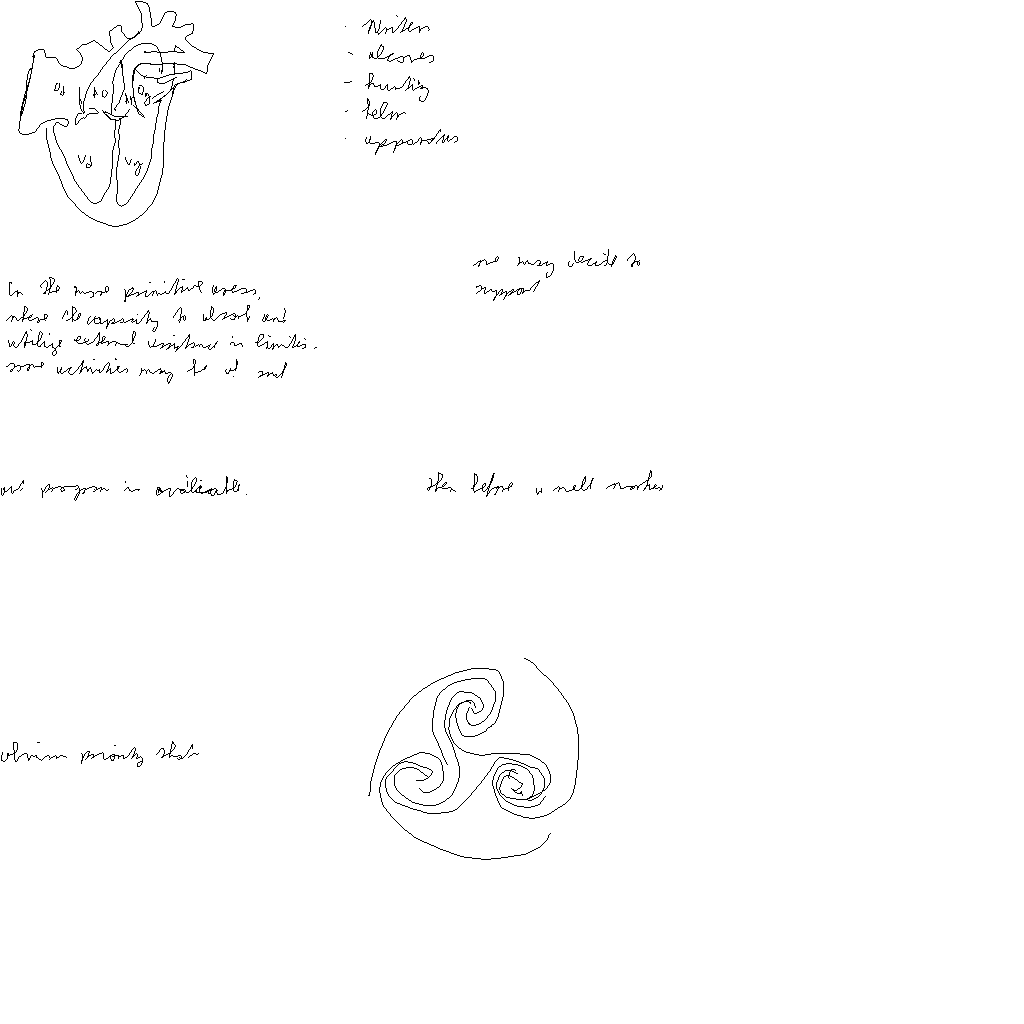 Od
AO
Og
Vd
Vg
- Writer
- alcoves
- hunting
- helm
- apparatus
we may decide to
support
In the more primitive areas,
where the capacity to absorb and
utilize external assistance is limited.
some activities may be of such
out program is available.
then before a well marked
obvious priority that